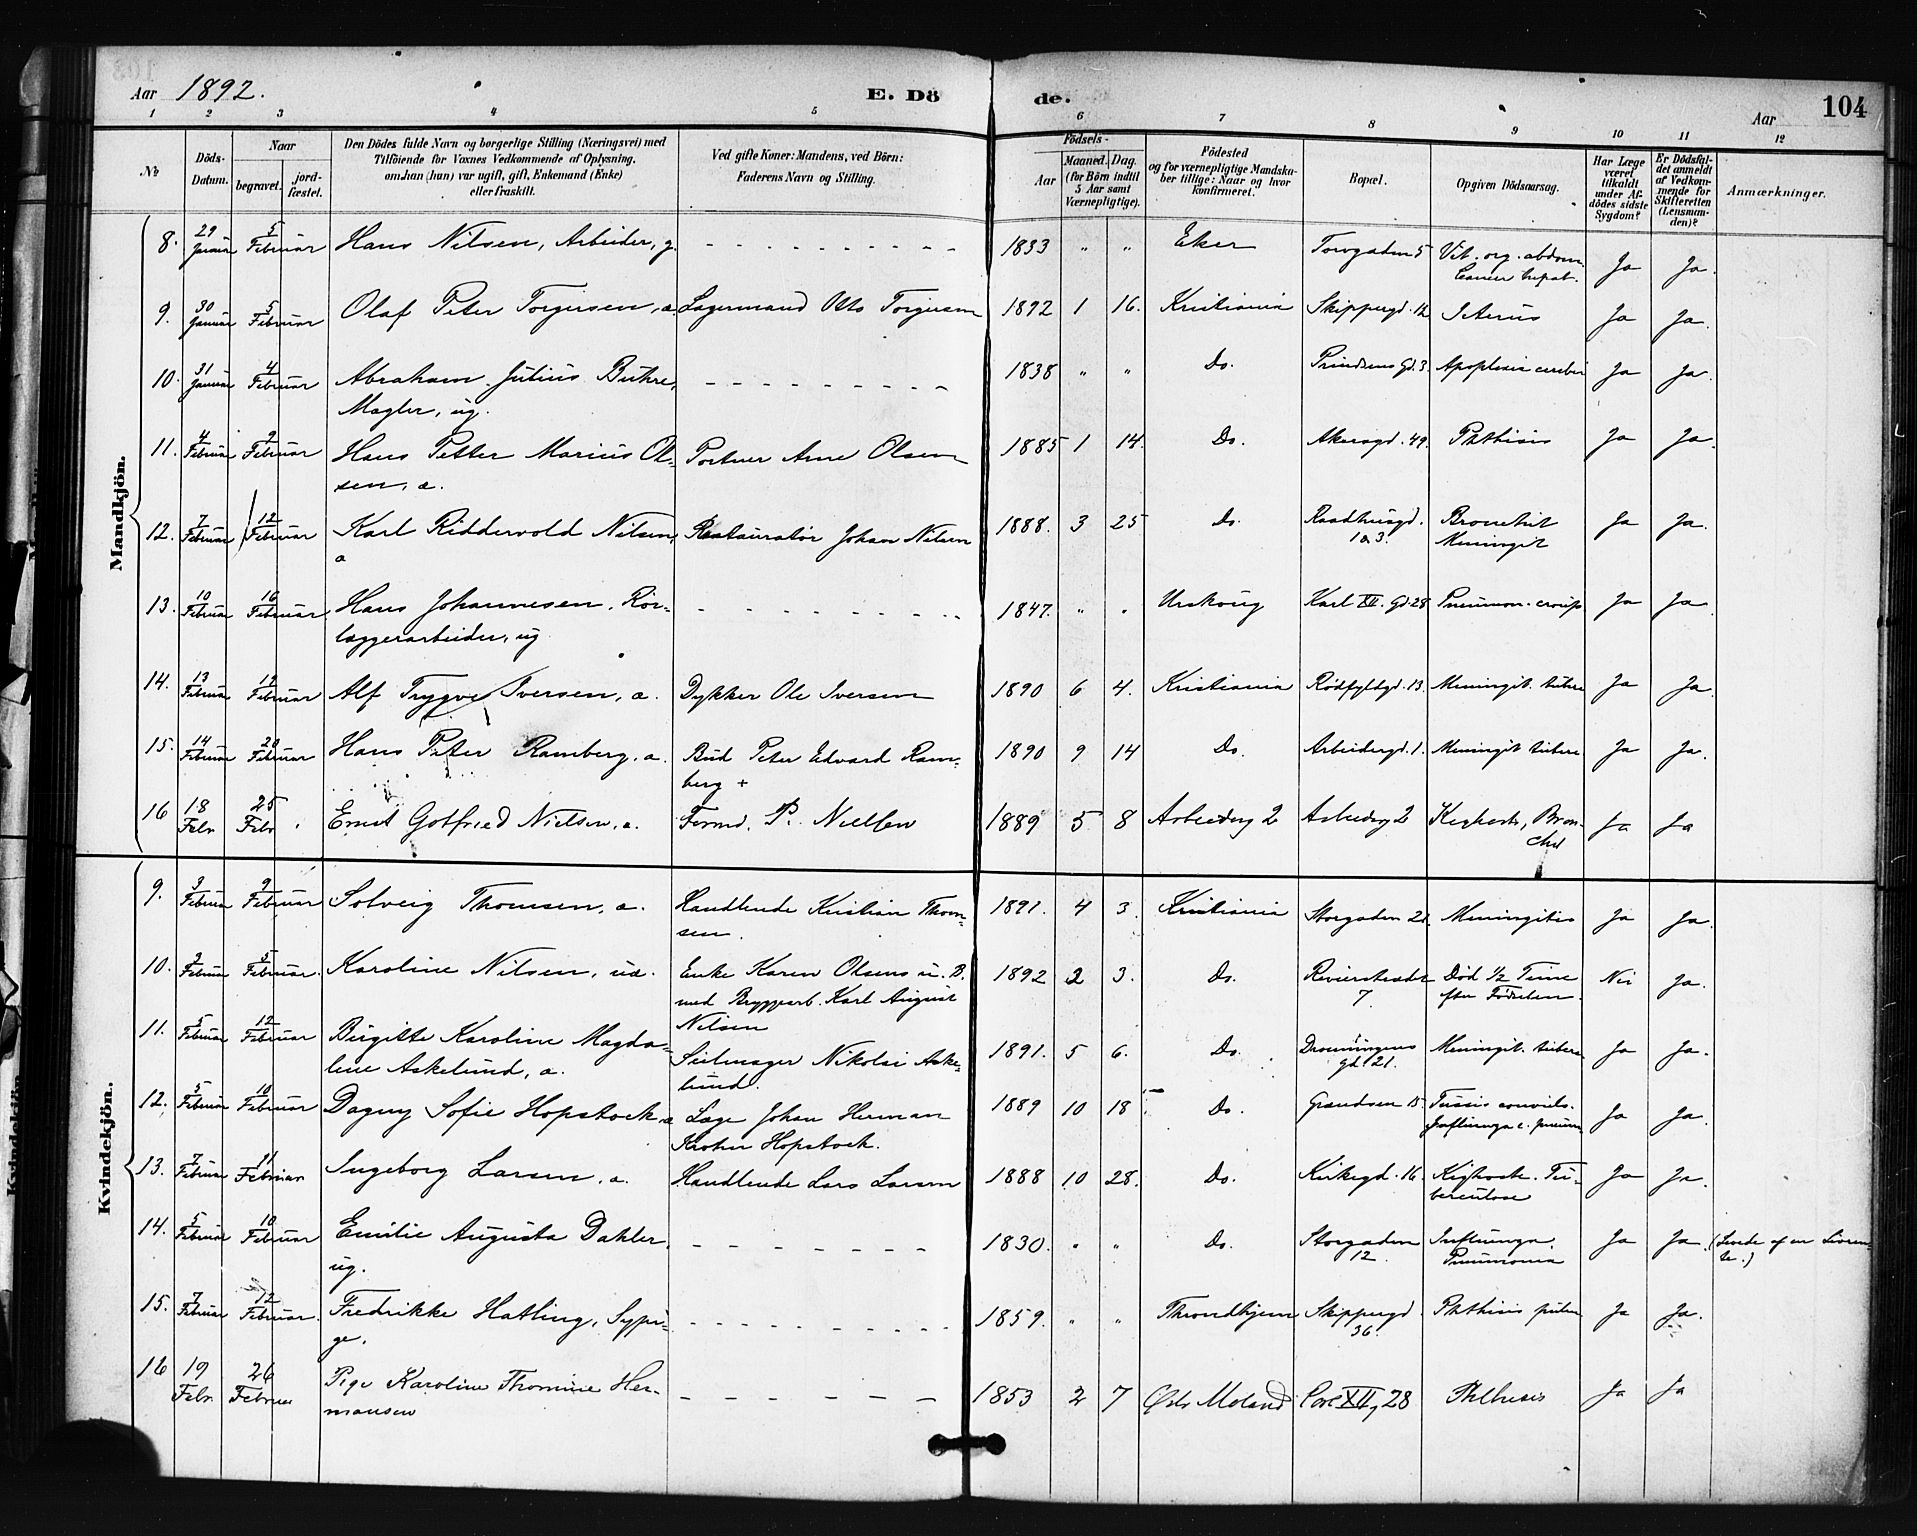 Aar 1892. E. Dö de. Aar 104
1 2 3 4 5 6 7 8 9 10 11 12
No Döds-Datum. Naar begravet. jord-fæstet. Den Dödes fulde Navn og borgerlige Stilling (Næringsvei) med Tilföiende for Voxnes Vedkommende af Oplysning, om han (hun) var ugift, gift, Enkemand (Enke) eller fraskilt. Ved gifte Koner: Mandens, ved Börn: Faderens Navn og Stilling. Födsels- Aar Maaned. Dag. (for Börn indtil 5 Aar samt Værnepligtige). Födested og for værnepligtige Mandskaber tillige: Naar og hvor konfirmeret. Bopæl. Opgiven Dödsaarsag. Har Læge været tilkaldt under Afdödes sidste Sygdom? Er Dödsfaldet anmeldt af Vedkommende for Skifteretten (Lensmanden)? Anmærkninger.
Mandkjön.
8. 29 Januar 5 Februar Hans Nilsen, Arbeider, g. 1833 " " Eker Torvgaden 5 Vit. org. abdom. Cancer hepat. Ja Ja.
9. 30 Januar 5 Februar Olaf Peter Torgersen, a. Lagermand Otto Torgersen 1892 1 16. Kristiania Skippergd. 12 Icterus Ja Ja.
10. 31 Januar 4 Februar Abraham Julius Buhre, 1838 " " Do. Prindsens Gd. 3. Apoplexia cerebri Ja Ja.
Mægler, ug.
11. 4 Februar 9 Februar Hans Petter Marius Ol- Portner Arne Olsen 1885 1 14. Do. Akersgd. 49. Phthisis Ja Ja.
sen, a.
12. 7 Februar 12 Februar Karl Riddervold Nilsen, Restauratör Johan Nilsen 1888. 3 25 Do. Raadhusgd. 1 & 3. Bronchit Meningit Ja Ja.
a
13. 10 Februar 16 Februar Hans Johannesen, Rör- 1847. " " Urskoug Karl XII. Gd. 28 Pneumon. croup. Ja Ja
læggerarbeider, ug.
14. 13 Februar 19 Februar Alf Trygve Iversen, a. Dykker Ole Iversen 1890 6 4. Kristiania Rödfyldgd. 13. Meningit. tuberc Ja Ja.
15. 14 Februar 20 Februar Hans Peter Ramberg, a. Bud Peter Edvard Ram- 1890 9 14 Do. Arbeidergd. 1. Meningit tuberc Ja Ja.
berg +
16 18 Febr 25 Febr Ernst Gotfried Nielsen, a. Formd. P. Nielsen 1889 5 8 Arbeiderg 2 Arbeiderg 2 Kighoste, Bron- Ja Ja
chit
Kvindekjön.
9. 3 Februar 9 Februar Solveig Thomsen, a. Handlende Kristian Thom- 1891. 4 3. Kristiania Storgaden 21. Meningitis Ja Ja.
sen.
10. 3 Februar 5 Februar. Karoline Nilsen, ud. Enke Karen Olsens u. B. 1892 2 3. Do. Revierstrædet 7. Död 1/2 Time efter Födselen. Nei Ja.
med Bryggearb. Karl August
Nilsen
11. 5 Februar 12 Februar Birgitte Karoline Magda- Seilmager Nikolai Aske- 1891. 5 6. Do. Dronningens gd. 21. Meningit. tuberc Ja Ja.
lene Askelund, a. lund.
12. 5 Februar 10 Februar Dagny Sofie Hopstock, a Læge Johan Herman 1889 10 18 Do. Grændsen 15. Tussis convuls. Influenza c. pneum Ja Ja.
Hopstock.
13. 7 Februar 11 Februar Ingeborg Larsen, a. Handlende Lars Larsen 1888 10 28. Do. Kirkegd. 16. Kighoste. Tu- Ja Ja.
berculose
14. 5 Februar 10 Februar Emilie Augusta Dahler, 1830. " " Do. Storgaden 12. Influenza Pneumonia Ja Ja. (Levede af en Livren-
ug. te.)
15. 7 Februar 12 Februar. Fredrikke Hatling, Sypi- 1859. " " Throndhjem Skippergd. 36. Phthisis pulm Ja Ja.
ge.
16 19 Febr 26 Februar Pige Karoline Thomine Her- 1853 2 7 Østr Moland Carl XII g 28 Phthisis Ja Ja
mansen